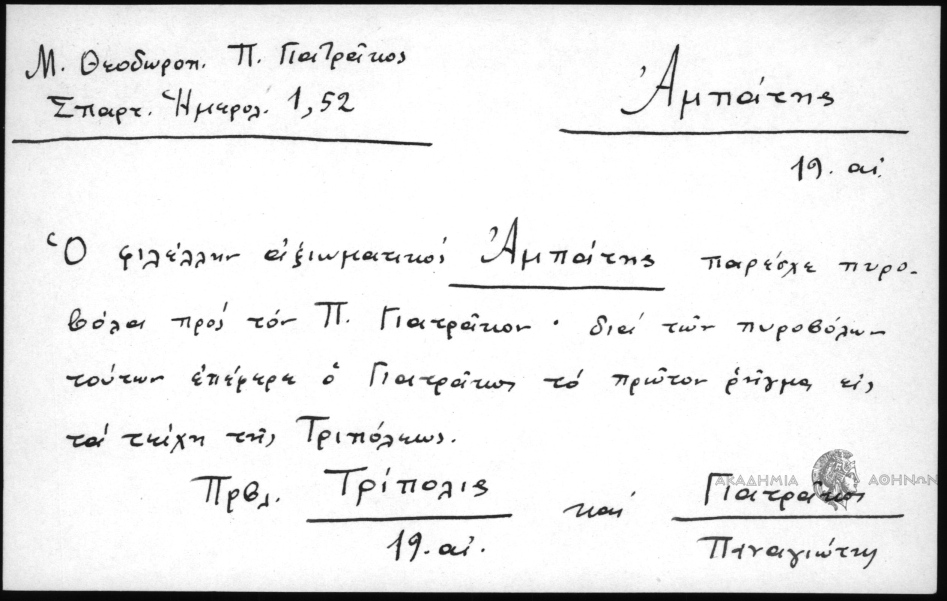 Μ. Θεοδωροπ. Π. Γιατρᾶκος
Σπαρτ. Ἡμερολ. 1,52
Ἀμπάτης
19. αἰ.
Ὁ φιλέλλην ἀξιωματικός Ἀμπάτης παρέσχε πυρο-
βόλα πρός τόν Π. Γιατρᾶκον · διά τῶν πυροβόλων
τούτων ἐπέφερε ὁ Γιατρᾶκος τό πρῶτον ρῆγμα εἰς
τά τείχη τῆς Τριπόλεως.
Πρβλ. Τρίπολις καί Γιατρᾶκος
19. αἰ. Παναγιώτης
ΑΚΑΔΗΜΙΑ ΑΘΗΝΩΝ